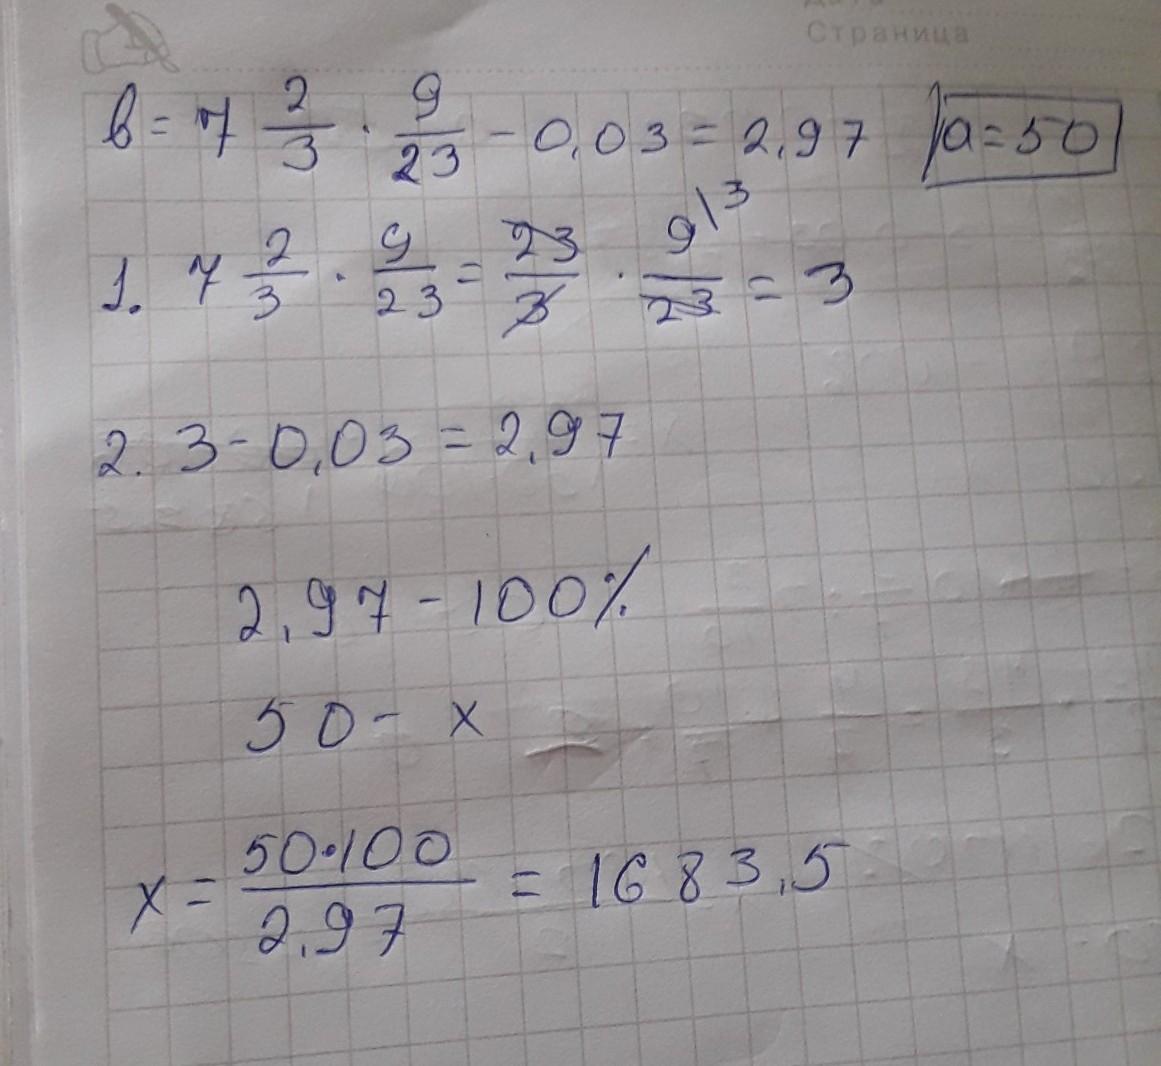 Страница
b = 7 2/3 · 9/23 - 0,03 = 2,97 a = 50
1. 7 2/3 · 9/23 = 23/3 · 9\3/23 = 3
2. 3 - 0,03 = 2,97
2,97 - 100%
50 - x
x = 50·100/2,97 = 1683,5